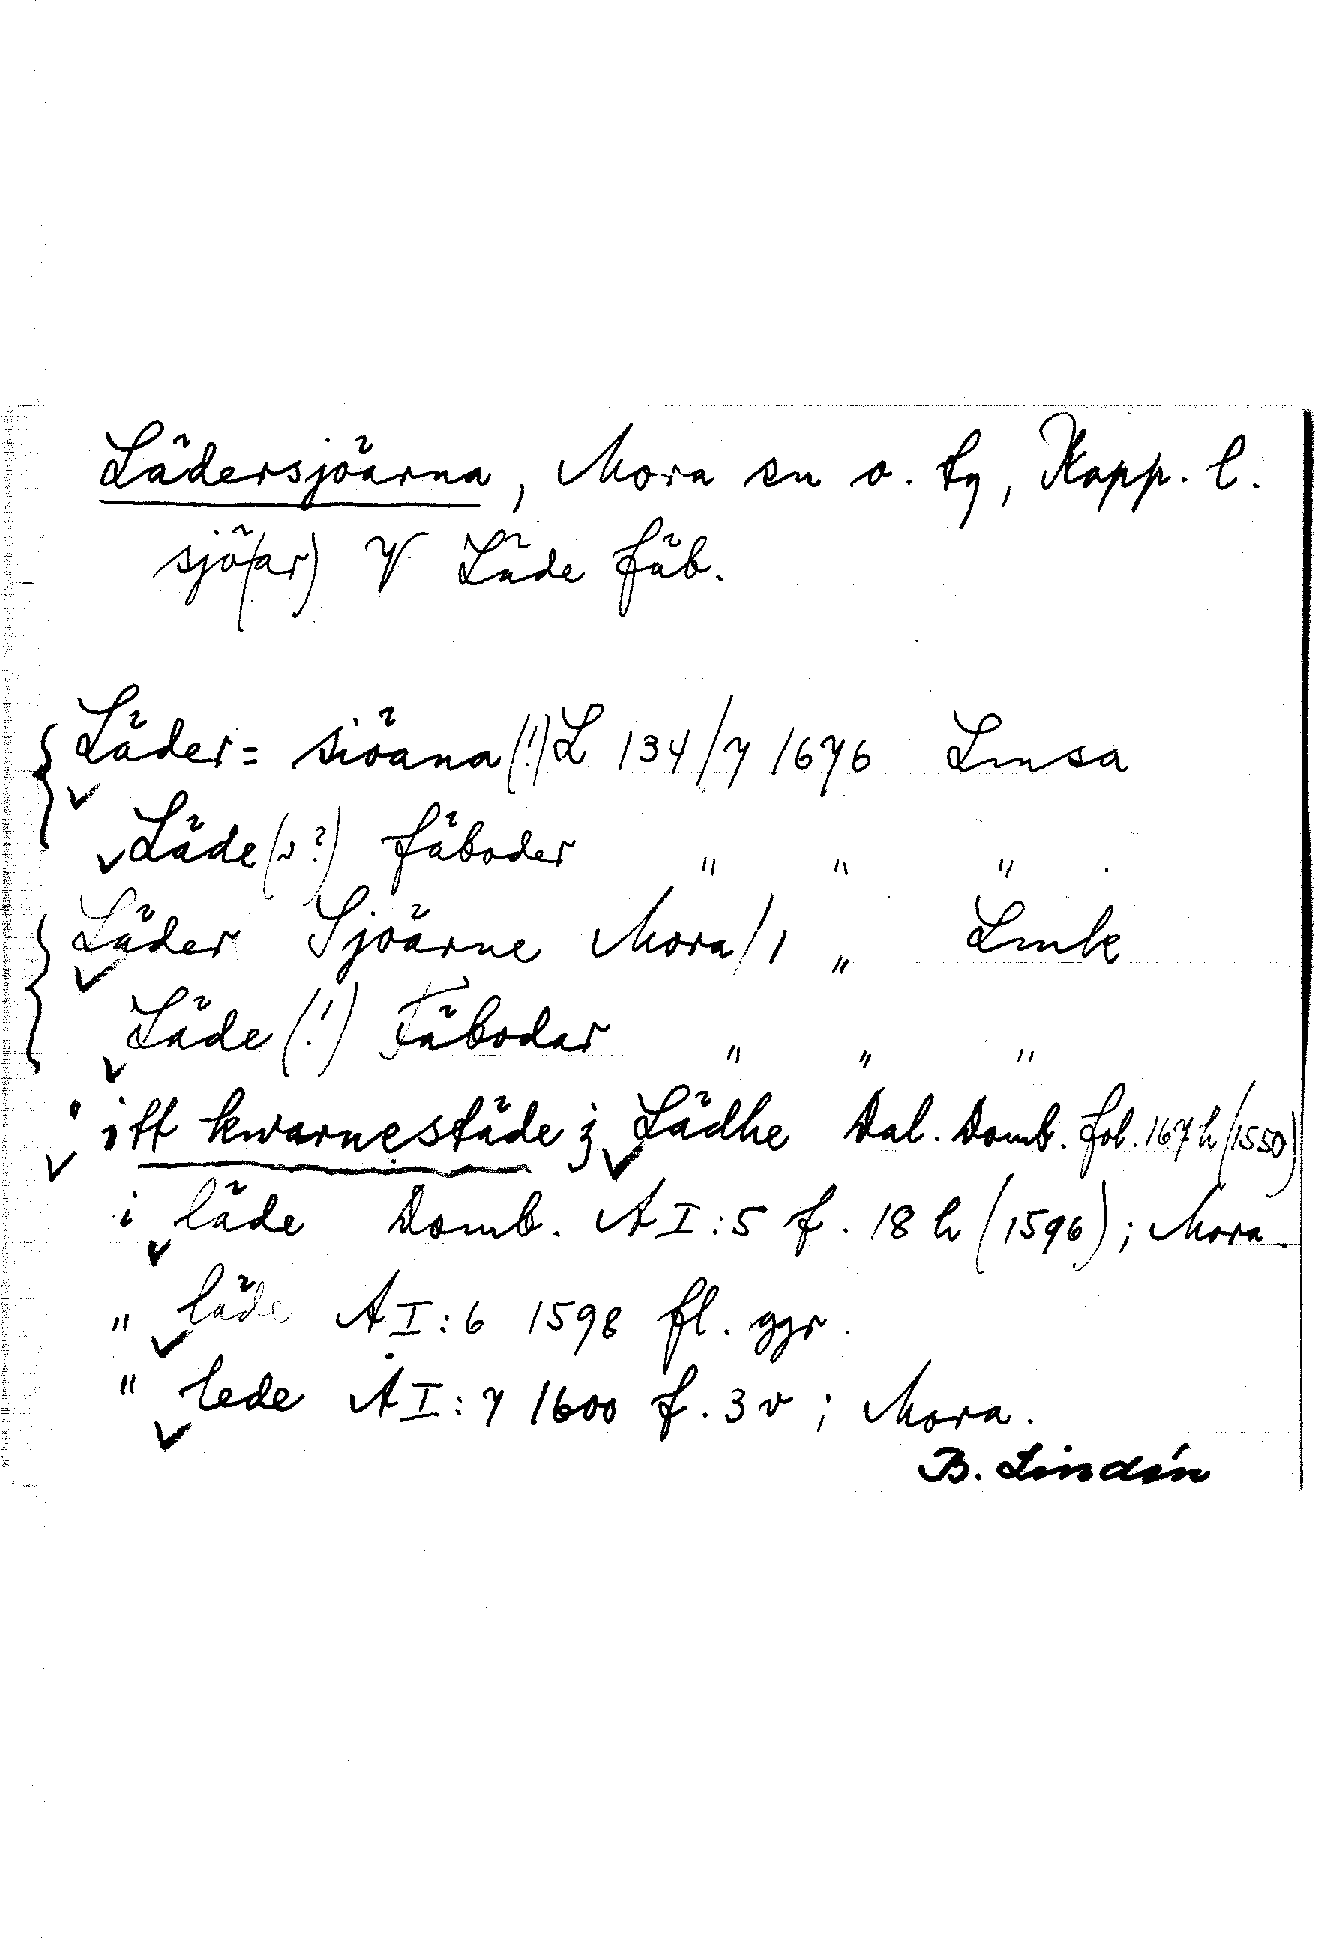 Lädersjöarna, Mora sn o. tg, Kopp. l.
sjö(ar) V Läde fäb.
Läder= siöana (!) L 134/7 1676 Lmsa
Läde (v?) fäboder " " "
Läder Sjöarne Mora/1 " Lmk
Läde (!) Fäbodar " " "
itt kwarnestäde j Lädhe Dal. Domb. fol. 167 h (1550)
i läde Domb. A I:5 f. 18 h (1596); Mora.
" läde A I:6 1598 fl. ggr.
" lede A I:7 1600 f. 3 v; Mora.
B. Lindén